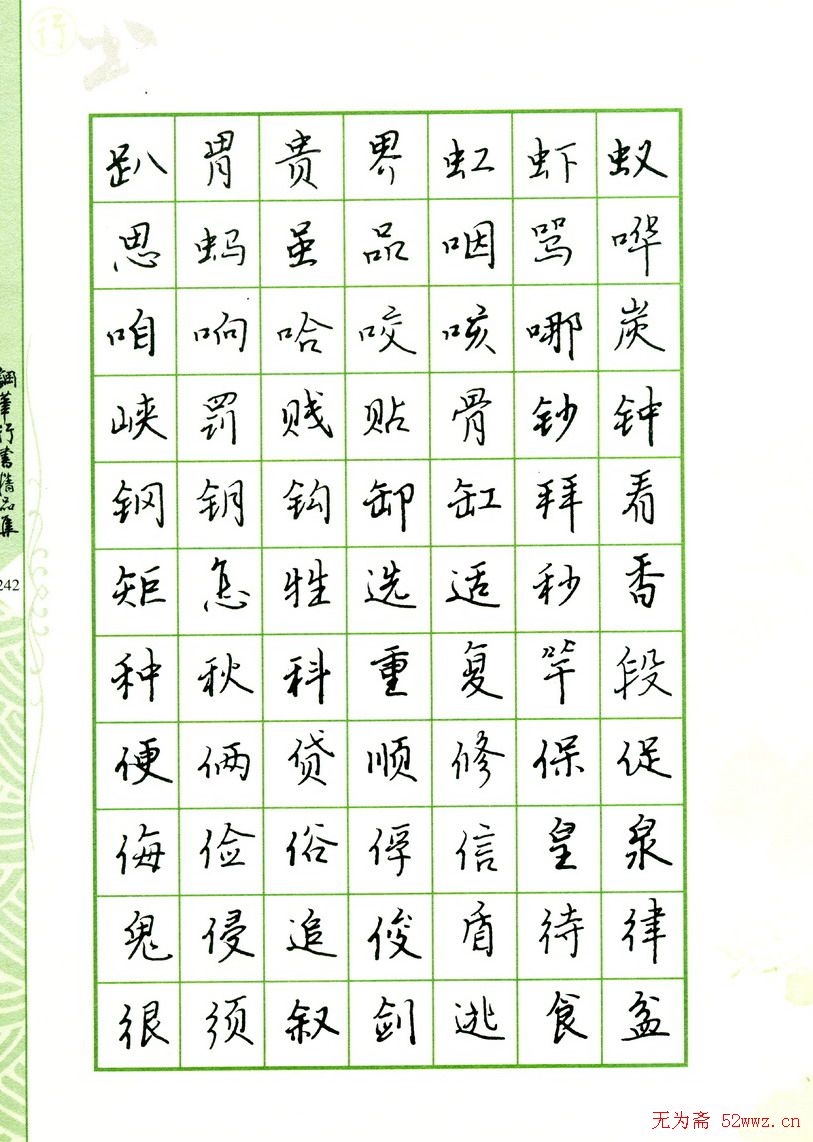 行书
趴胃贵界虹虾蚁
思蚂虽品咽骂哗
咱响哈咬咳哪炭
峡罚贱贴骨钞钟
钢钥钩卸缸拜看
矩怎牲选适秒香
种秋科重复竿段
便俩贷顺修保促
侮俭俗俘信皇泉
鬼侵追俊盾待律
很须叙剑逃食盆
钢笔行书精品集
242
无为斋 52wwz.cn